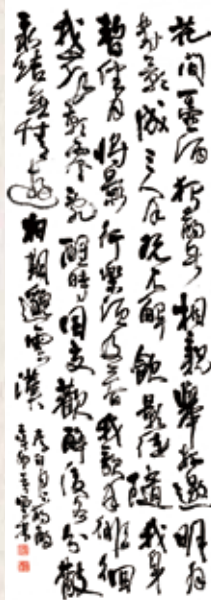 花間一壺酒獨酌無相親舉杯邀明月
對影成三人月既不解飲影徒隨我身
暫伴月將影行樂須及春我歌月徘徊
我舞影零亂醒時同交歡醉後各分散
永結無情遊相期邈雲漢